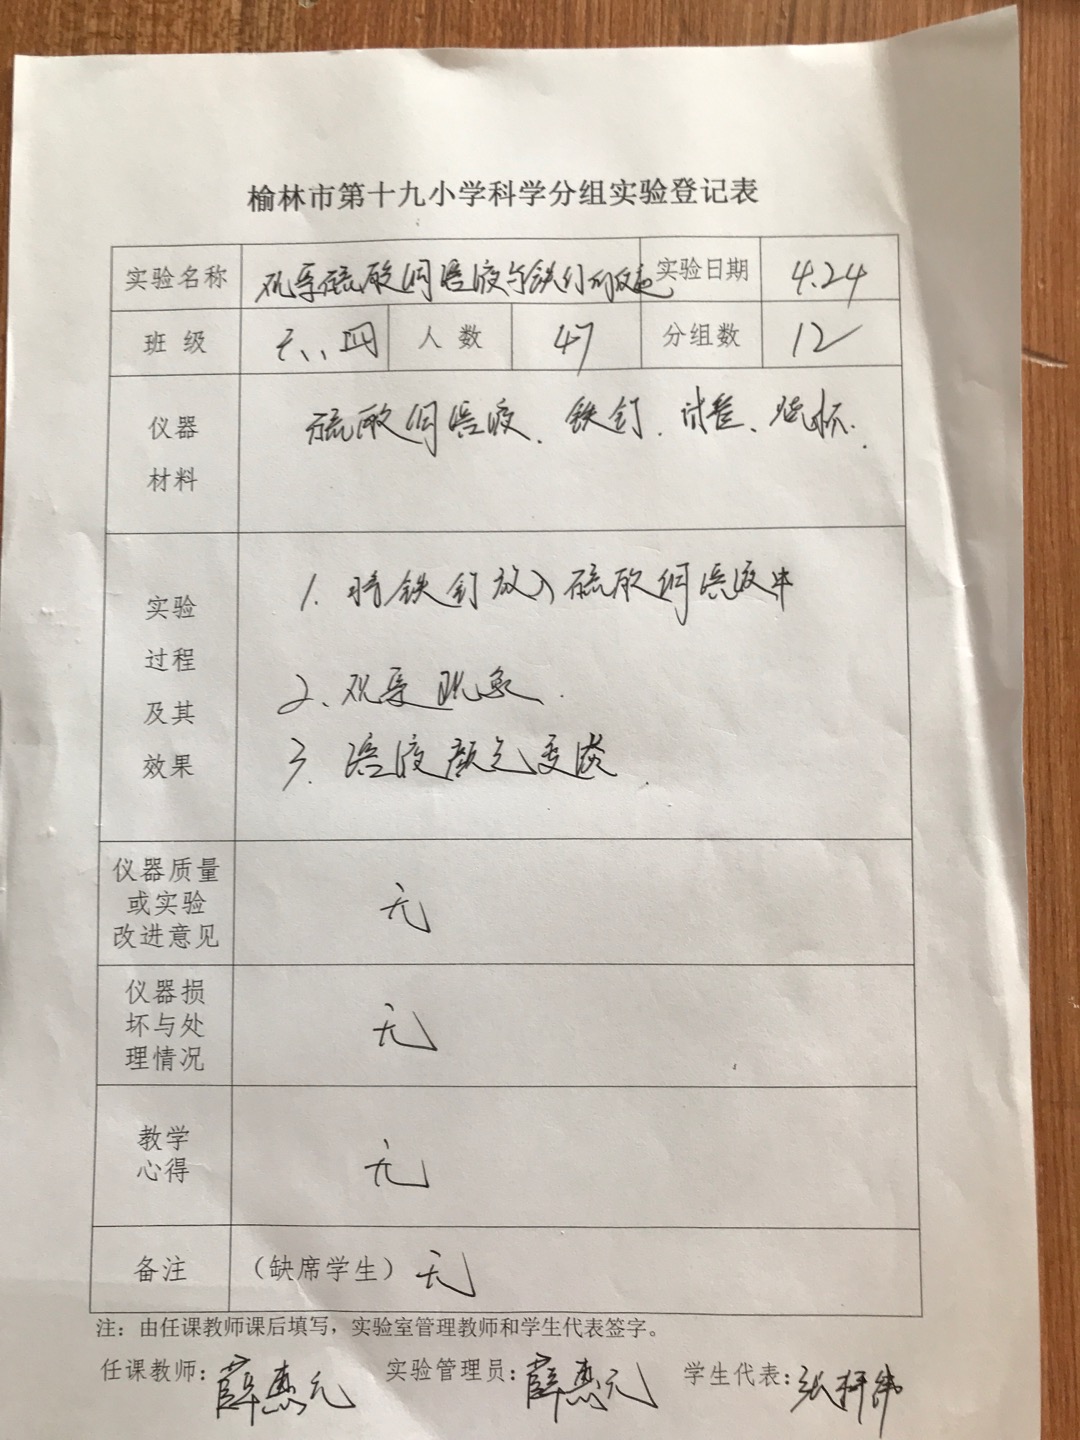 榆林市第十九小学科学分组实验登记表
实验名称 观察硫酸铜溶液与铁钉的反应 实验日期 4.24
班级 六、四 人数 47 分组数 12
仪器
材料
硫酸铜溶液、铁钉、试管、烧杯.
实验
过程
及其
效果
1. 将铁钉放入硫酸铜溶液中
2、观察现象.
3. 溶液颜色变淡.
仪器质量
或实验
改进意见
无
仪器损
坏与处
理情况
无
教学
心得
无
备注 （缺席学生） 无
注：由任课教师课后填写，实验室管理教师和学生代表签字。
任课教师：薛惠元 实验管理员：薛惠元 学生代表：张